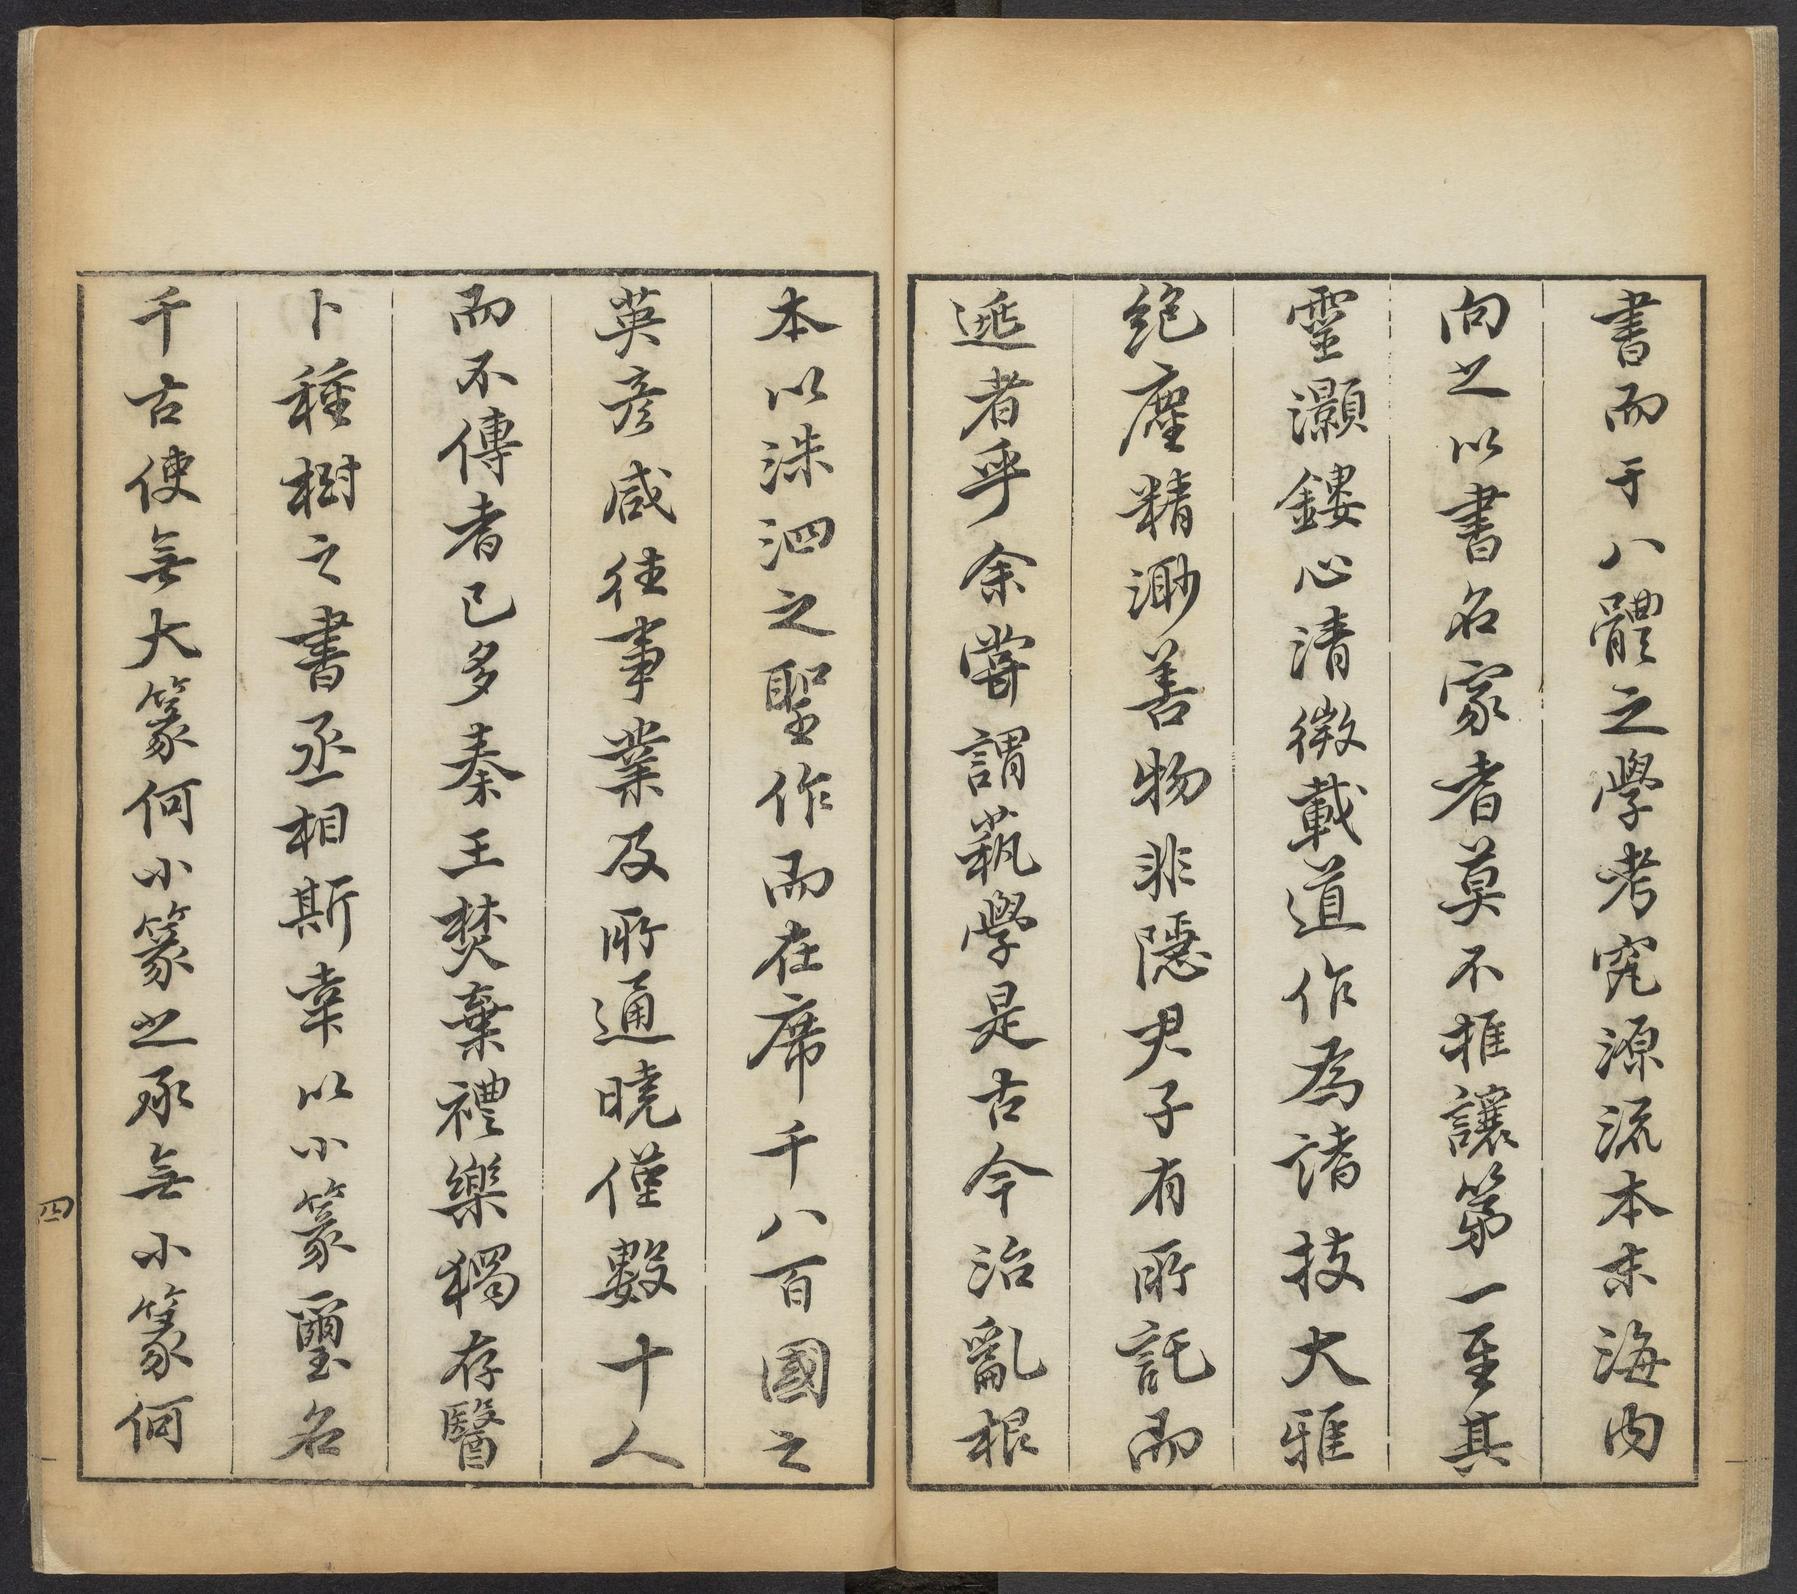 書而于八體之學考究源流本末海内
向之以書名家者莫不推讓第一至其
靈灝鏤心清微載道作為諸技大雅
絶塵精渺善物非隱君子有所託而
遯者乎余嘗謂藝學是古今治亂根
本以洙泗之聖作而在席千八百國之
英彦咸徃事業及所通曉僅數十人
而不傳者已多秦王焚棄禮樂獨存醫
卜種樹之書丞相斯幸以小篆璽名
千古使無大篆何小篆之承無小篆何
四